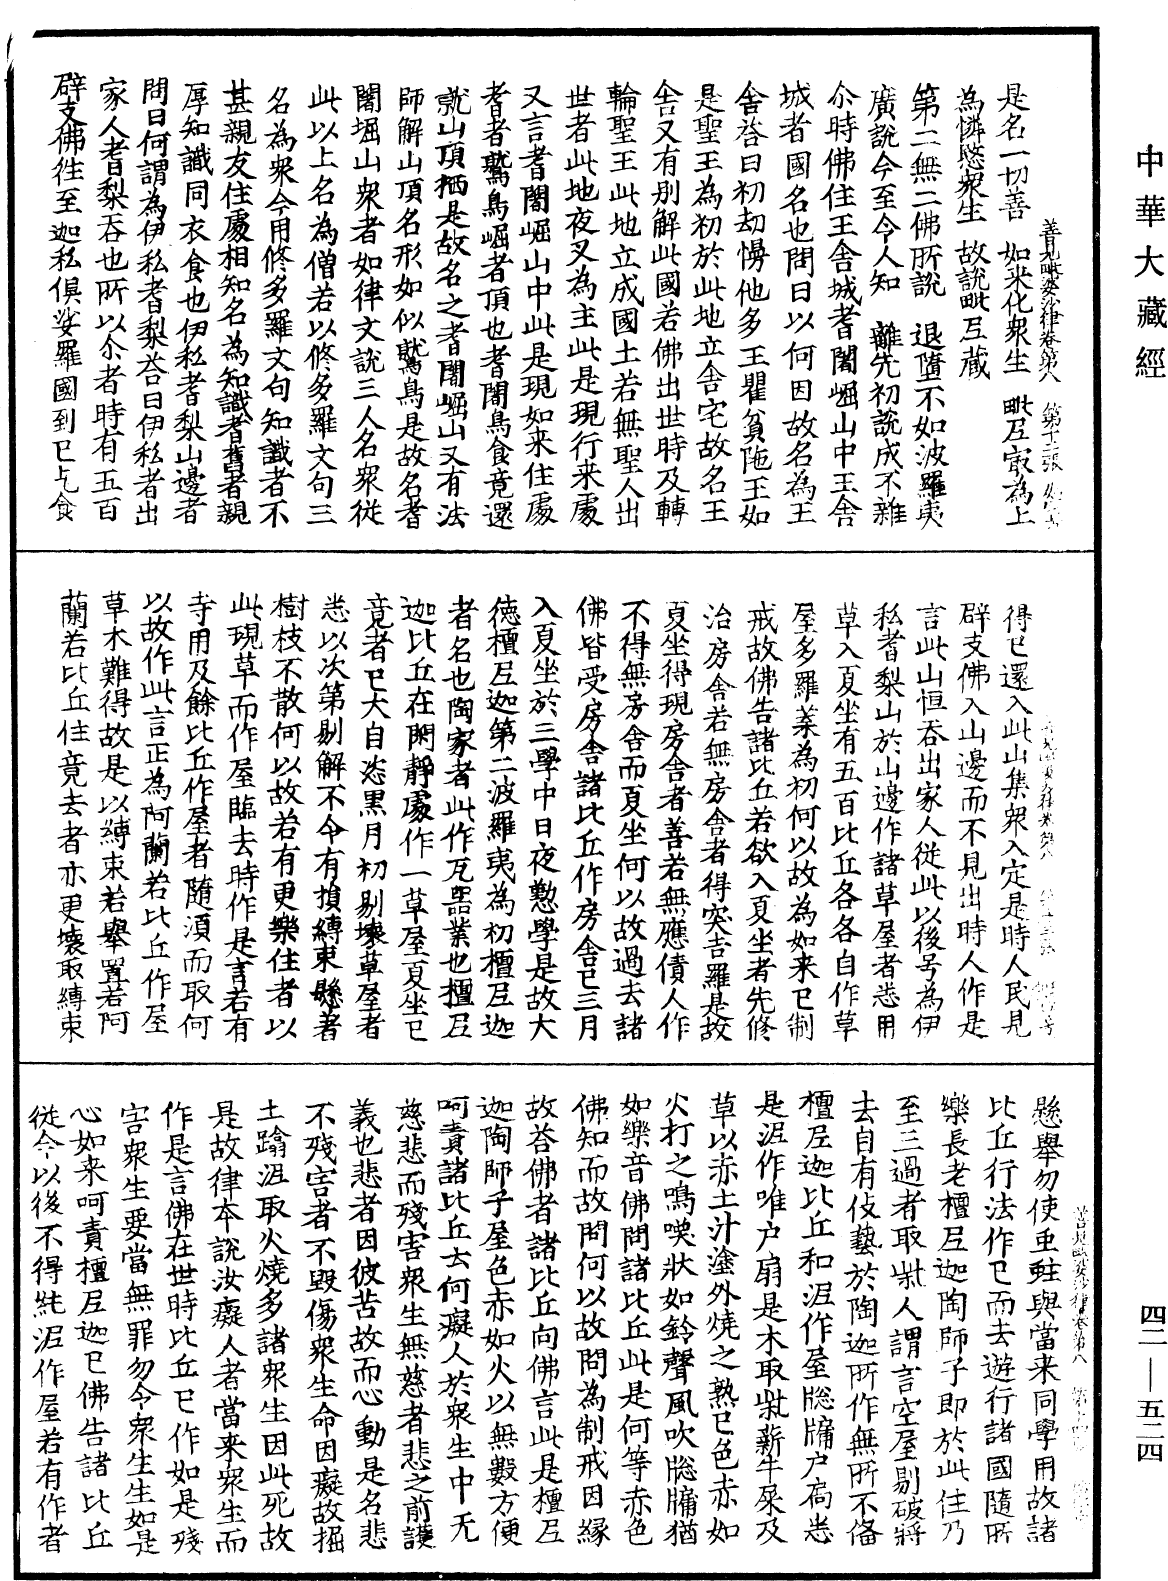 中華大藏經
四二—五二四
善見毗婆沙律卷第八 第十二張
是名一切善 如来化衆生 毗尼寂為上
為憐愍衆生 故說毗尼藏
第二無二佛所說 退墮不如波羅夷
廣說今至令人知 離先初說成不雜
尒時佛住王舎城耆闍崛山中王舎
城者國名也問曰以何因故名為王
舎荅曰初劫㥬他多王瞿貧陁王如
是聖王為初於此地立舎宅故名王
舎又有別解此國若佛出世時及轉
輪聖王此地立成國土若無聖人出
世者此地夜叉為主此是現行来處
又言耆闍崛山中此是現如来住處
耆者鷲鳥崛者頂也耆闍鳥食竟還
就山頂栖是故名之耆闍崛山又有法
師解山頂名形如似鷲鳥是故名耆
闍堀山衆者如律文說三人名衆從
此以上名為僧若以修多羅文句三
名為衆今用修多羅文句知識者不
甚親友住處相知名為知識耆舊者親
厚知識同衣食也伊私耆梨山邊者
問曰何謂為伊私耆梨荅曰伊私者出
家人耆梨吞也所以尒者時有五百
辟支佛徃至迦私俱娑羅國到已乞食
得已還入此山集衆入定是時人民見
辟支佛入山邊而不見出時人作是
言此山恒吞出家人從此以後号為伊
私耆梨山於山邊作諸草屋者悉用
草入夏坐有五百比丘各各自作草
屋多羅葉為初何以故為如来已制
戒故佛告諸比丘若欲入夏坐者先修
治房舎若無房舎者得突吉羅是故
夏坐得現房舎者善若無應倩人作
不得無房舎而夏坐何以故過去諸
佛皆受房舎諸比丘作房舎已三月
入夏坐於三學中日夜懃學是故大
德檀尼迦第二波羅夷為初檀尼迦
者名也陶家者此作瓦器業也檀尼
迦比丘在閑靜處作一草屋夏坐已
竟者已大自恣黑月初剔壞草屋者
悉以次第剔解不令有損縛束懸著
樹枝不散何以故若有更樂住者以
此現草而作屋臨去時作是言若有
寺用及餘比丘作屋者隨須而取何
以故作此言正為阿蘭若比丘作屋
草木難得故是以縛束若舉置若阿
蘭若比丘住竟去者亦更壞取縛束
懸舉勿使虫蛀與當来同學用故諸
比丘行法作已而去遊行諸國隨所
樂長老檀尼迦陶師子即於此住乃
至三過者取㭰人謂言空屋剔破將
去自有伎藝於陶迦所作無所不俻
檀尼迦比丘和泥作屋牎牖户扃悉
是泥作唯户扇是木取㭰薪牛屎及
草以赤土汁塗外燒之熟已色赤如
火打之鳴喚狀如鈴聲風吹牎牖猶
如樂音佛問諸比丘此是何等赤色
佛知而故問何以故問為制戒因緣
故荅佛者諸比丘向佛言此是檀尼
迦陶師子屋色赤如火以無數方便
呵責諸比丘去何癡人於衆生中无
慈悲而殘害衆生無慈者悲之前護
義也悲者因彼苦故而心動是名悲
不殘害者不毀傷衆生命因癡故掘
土蹋泥取火燒多諸衆生因此死故
是故律本說汝癡人者當来衆生而
作是言佛在世時比丘已作如是殘
害衆生要當無罪勿令衆生生如是
心如来呵責檀尼迦已佛告諸比丘
從今以後不得純泥作屋若有作者
善見毗婆沙律卷第八